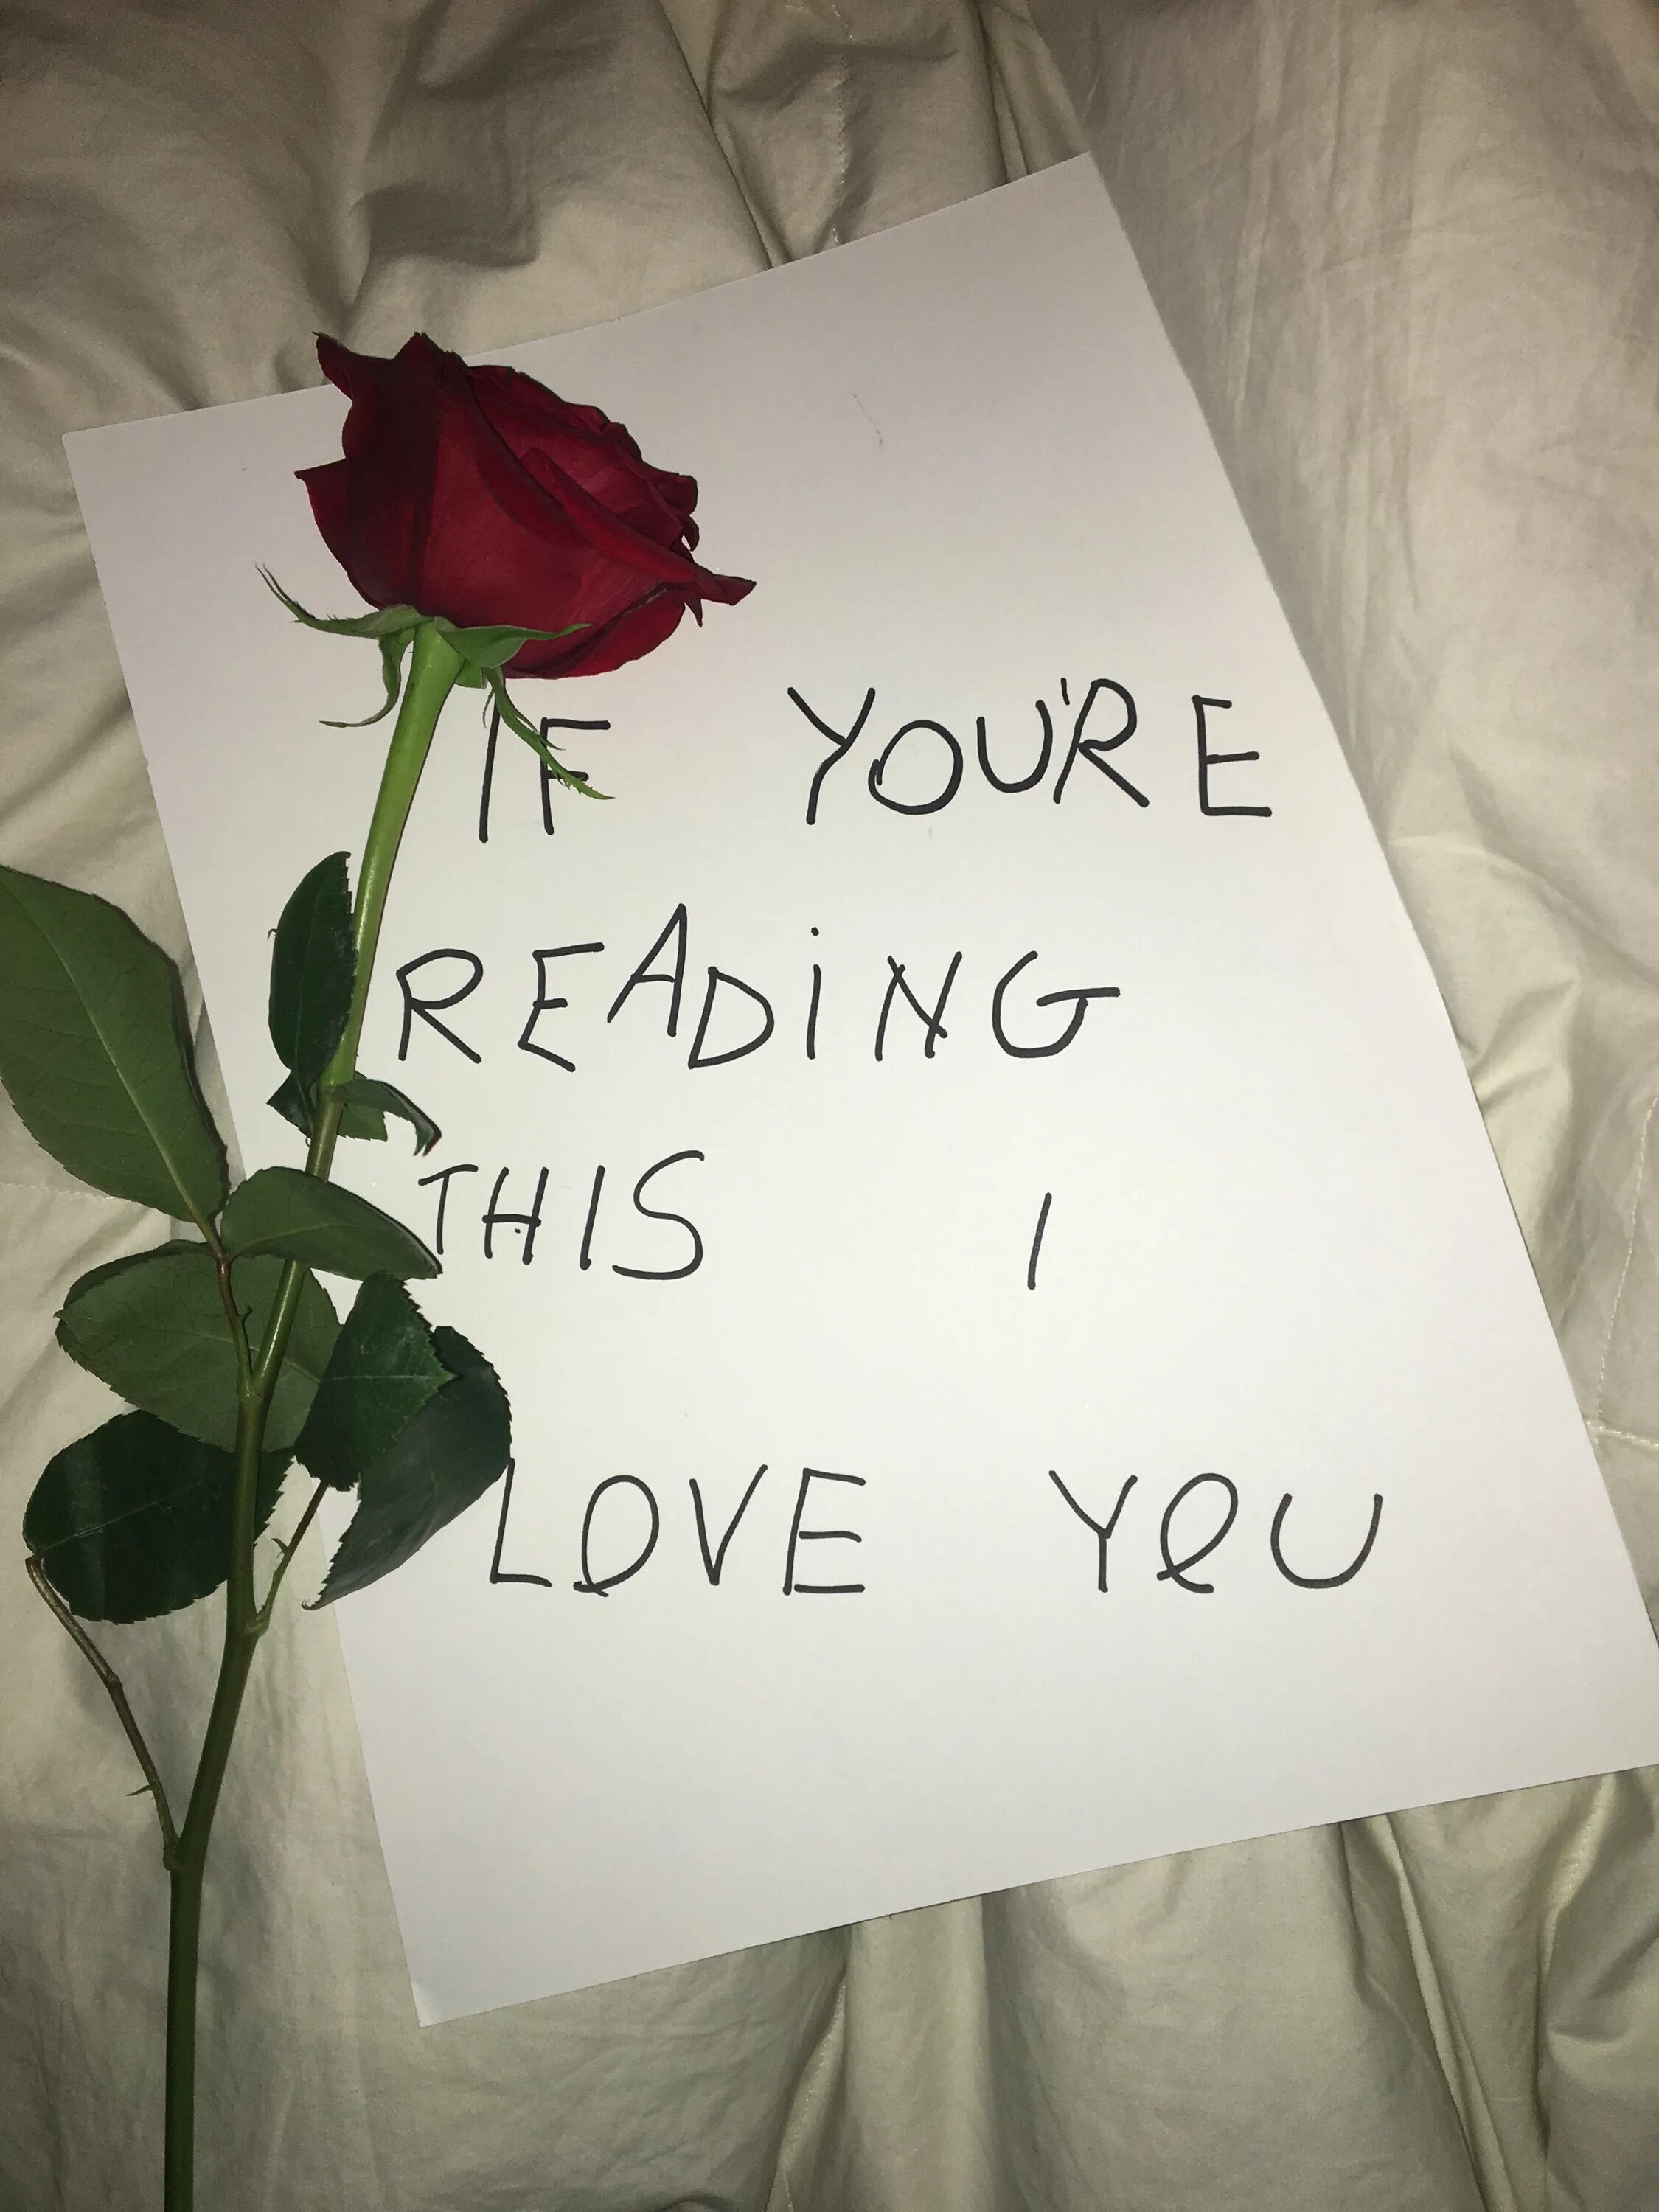 IF YOU'RE
READiNG
THIS I
LOVE YOU